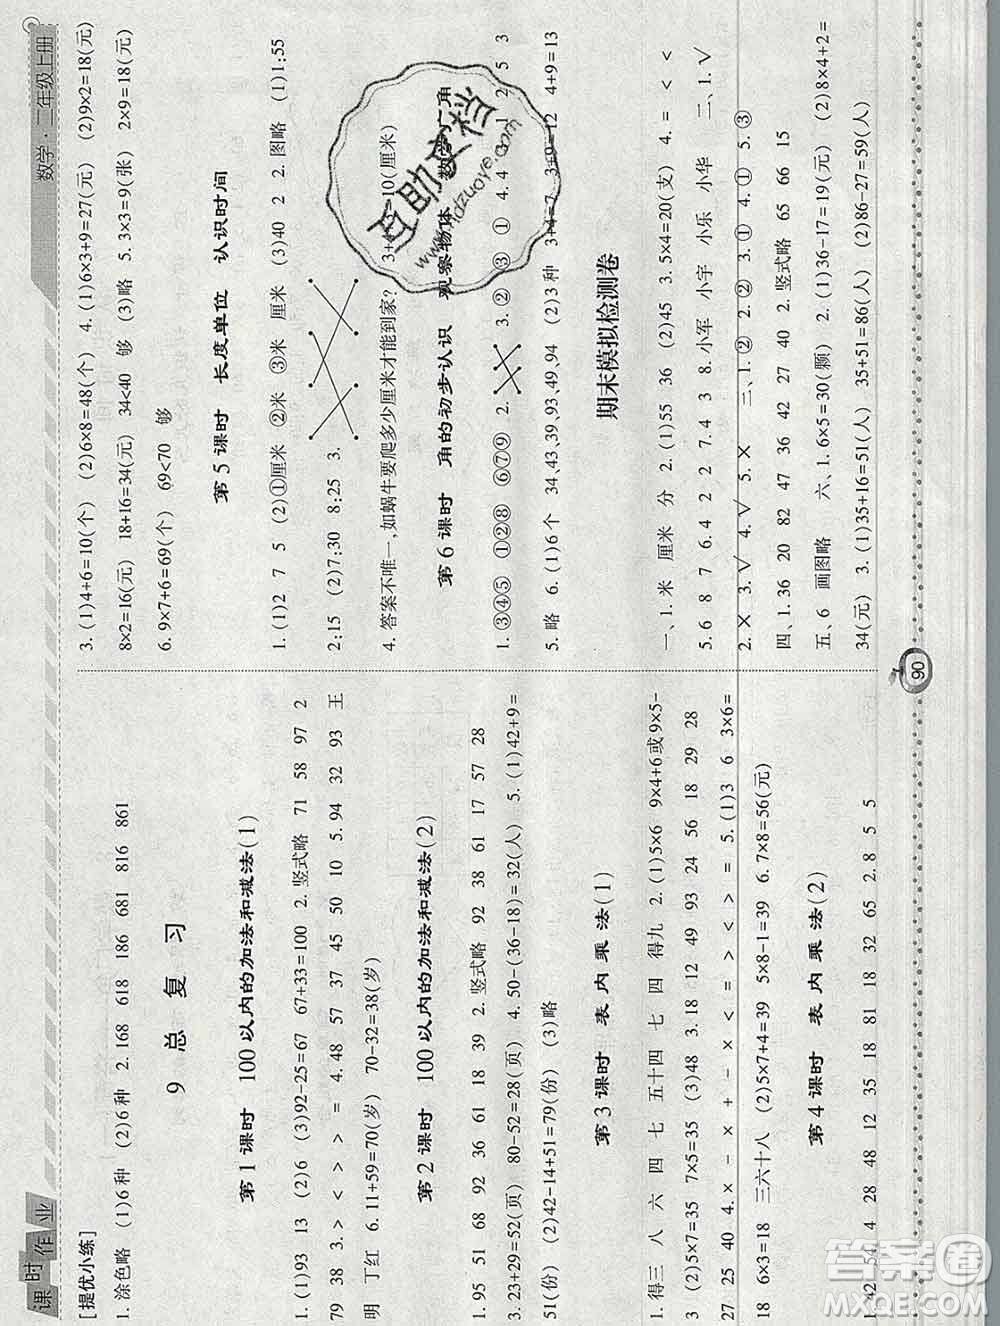 课时作业
数学·二年级上册
[提优小练]
1. 涂色略 (1)6种 (2)6种 2. 168 618 186 681 816 861
9 总复习
第1课时 100以内的加法和减法(1)
1. (1)93 13 (2)6 (3)92-25=67 67+33=100 2. 竖式略 71 58 97 2
79 38 3. > < > > = 4. 48 57 37 45 50 10 5. 94 32 93 王
明 丁红 6. 11+59=70(岁) 70-32=38(岁)
第2课时 100以内的加法和减法(2)
1. 95 51 68 92 36 61 18 39 2. 竖式略 92 38 61 17 57 28
3. 23+29=52(页) 80-52=28(页) 4. 50-(36-18)=32(人) 5. (1)42+9=
51(份) (2)42-14+51=79(份) (3)略
第3课时 表内乘法(1)
1. 得三 八 六 四 七 五十四 七 四 得九 2. (1)5×6 9×4+6或9×5-
3 (2)5×7=35 7×5=35 (3)48 3. 18 12 49 93 24 56 18 29 28
27 25 40 4. × - × + - × < = > < > = 5. (1)3 6 3×6=
18 6×3=18 三六十八 (2)5×7+4=39 5×8-1=39 6. 7×8=56(元)
第4课时 表内乘法(2)
1. 42 54 4 28 48 12 35 18 81 18 32 65 2. 8 5 5
3. (1)4+6=10(个) (2)6×8=48(个) 4. (1)6×3+9=27(元) (2)9×2=18(元)
8×2=16(元) 18+16=34(元) 34<40 够 (3)略 5. 3×3=9(张) 2×9=18(元)
6. 9×7+6=69(个) 69<70 够
第5课时 长度单位 认识时间
1. (1)2 7 5 (2)①厘米 ②米 ③米 厘米 (3)40 2 2. 图略 (1)1:55
2:15 (2)7:30 8:25 3.
4. 答案不唯一,如蜗牛要爬多少厘米才能到家? 10(厘米)
第6课时 角的初步认识 观察物体 数学广角
1. ③④⑤ ①②⑧ ⑥⑦⑨ 2. 3. ② ③ ① 4. 4 1 2 5 3
5. 略 6. (1)6个 34,43,39,93,49,94 (2)3种 3+4=7 3+9=12 4+9=13
期末模拟检测卷
一、1. 米 厘米 分 2. (1)55 36 (2)45 3. 5×4=20(支) 4. = < <
5. 6 8 7 6. 4 2 2 7. 4 3 8. 小军 小宇 小乐 小华 二、1. √
2. × 3. √ 4. √ 5. × 三、1. ② 2. ② 3. ① 4. ① 5. ③
四、1. 36 20 82 47 36 42 27 40 2. 竖式略 65 66 15
五、6 画图略 六、1. 6×5=30(颗) 2. (1)36-17=19(元) (2)8×4+2=
34(元) 3. (1)35+16=51(人) 35+51=86(人) (2)86-27=59(人)
90
互助文档
答案圈
MXQE.COM